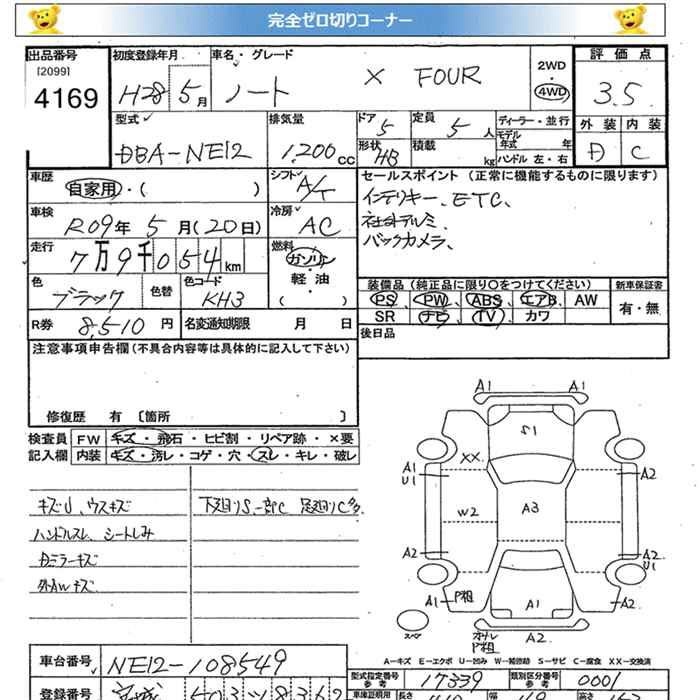 完全ゼロ切りコーナー
出品番号
[2099]
4169
初度登録年月
H28 5月
車名・グレード
ノート X FOUR
2WD
・
4WD
評価点
3.5
型式
DBA-NE12
排気量
1.200cc
ドア
5
定員
5人
ディーラー・並行
モデル
年式 年
形状
HB
積載
kg
ハンドル 左・右
外装 内装
D C
車歴
自家用・( )
シフト
A/T
セールスポイント(正常に機能するものに限ります)
インテリキー、ETC、
社外アルミ、
バックカメラ、
車検
R09年 5月(20日)
冷房
AC
走行
7万9千054km
燃料
ガソリン
・
軽油
( )
色
ブラック
色替
色コード
KH3
装備品(純正品に限り○をつけてください)
PS PW ABS エアB AW
SR ナビ TV カワ
新車保証書
有・無
R券 8,510円
名変通知期限 月 日
後日品
注意事項申告欄(不具合内容等は具体的に記入して下さい)
修復歴 有 〔箇所 〕
検査員 FW キズ・飛石・ヒビ割・リペア跡・×要
記入欄 内装 キズ・汚レ・コゲ・穴・スレ・キレ・破レ
キズU、ウスキズ
下廻りS、一部C 足廻りC多
ハンドルスレ、シートしみ
Dミラーキズ
外AWキズ
A1 A1
S1
XX
A1
U1
A2
W2
A3
A2
A2
U2
A1
P粗
A1
A2
スペア
A2
P粗
A-キズ E-エクボ U-凹み W-補修跡 S-サビ C-腐食 XX-交換済
車台番号 NE12-108549
型式指定番号
参考
17339
類別区分番号
参考
0001
登録番号
車庫証明用
長さ
幅
高さ